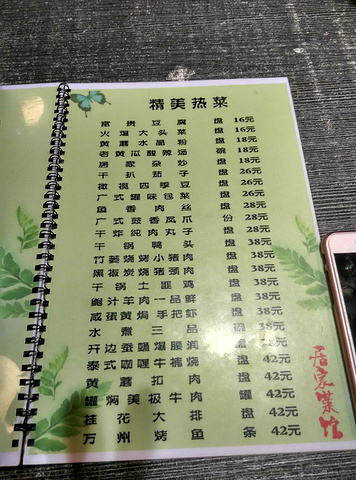 精美热菜
富贵豆腐 盘 16元
火爆大头菜 盘 16元
黄蘑水晶粉 盘 18元
老黄瓜酸辣汤 碗 18元
居家杂炒 盘 18元
干扒茄子 盘 26元
橄榄四季豆 盘 26元
广式腊味包菜 盘 26元
鱼香肉丝 盘 28元
广式豉香凤爪 份 28元
干炸纯肉丸子 盘 28元
干锅鸭头 盘 38元
竹荽烧烤小猪肉 盘 38元
黑椒炭烧猪颈肉 盘 38元
干锅土匪鸡 盘 38元
鲍汁羊肉一品鲜 盘 38元
咸蛋黄焗一手把虾 盘 38元
水煮三品 碗 38元
开边爆腰润 盘 8元
泰式咖喱牛腩烧 盘 42元
黄蘑扣肉 盘 42元
罐焖美极牛肉 罐 42元
桂花大排 盘 42元
万州烤鱼 条 42元
居家菜馆